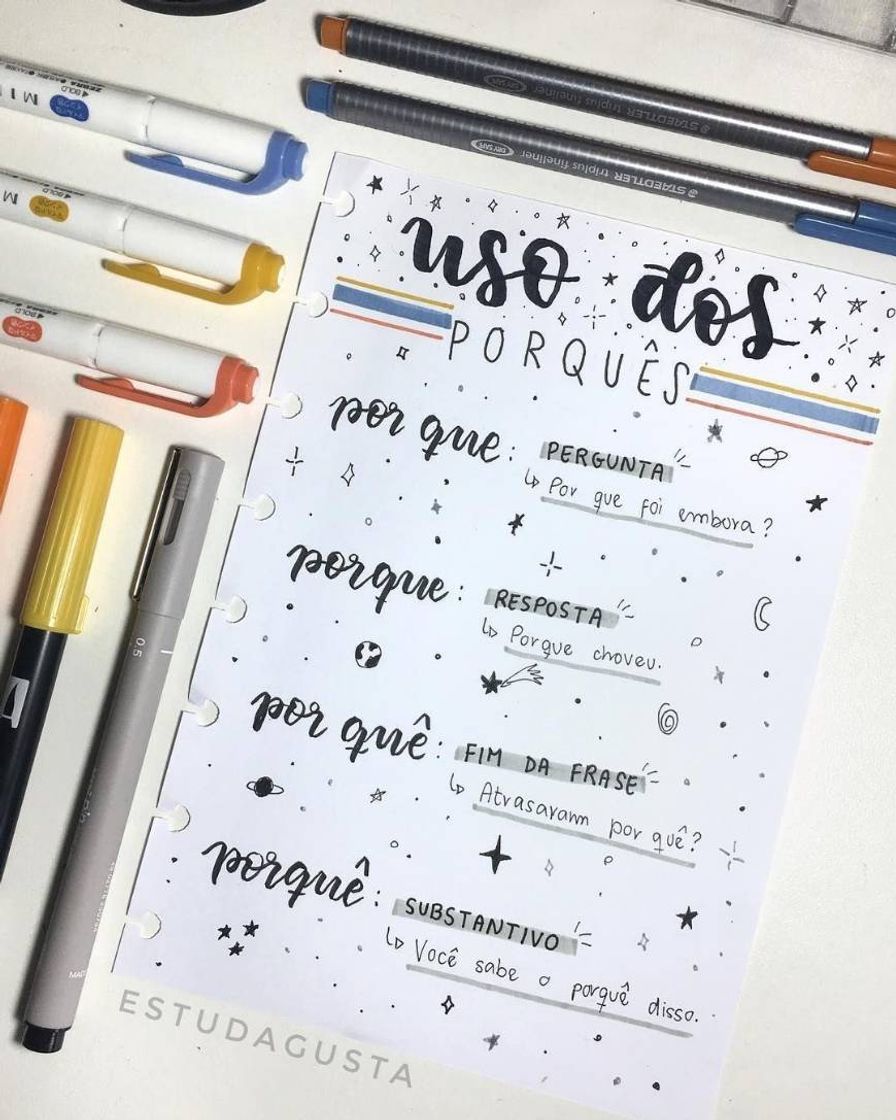 STAEDTLER triplus fineliner DRY SAFE
STAEDTLER triplus fineliner DRY SAFE
ZEBRA BOLD
BOLD
BOLD
uso dos
PORQUÊS
por que: PERGUNTA
Por que foi embora?
porque: RESPOSTA
Porque choveu.
por quê: FIM DA FRASE
Atrasaram por quê?
porquê: SUBSTANTIVO
Você sabe o porquê disso.
0.5
ESTUDAGUSTA